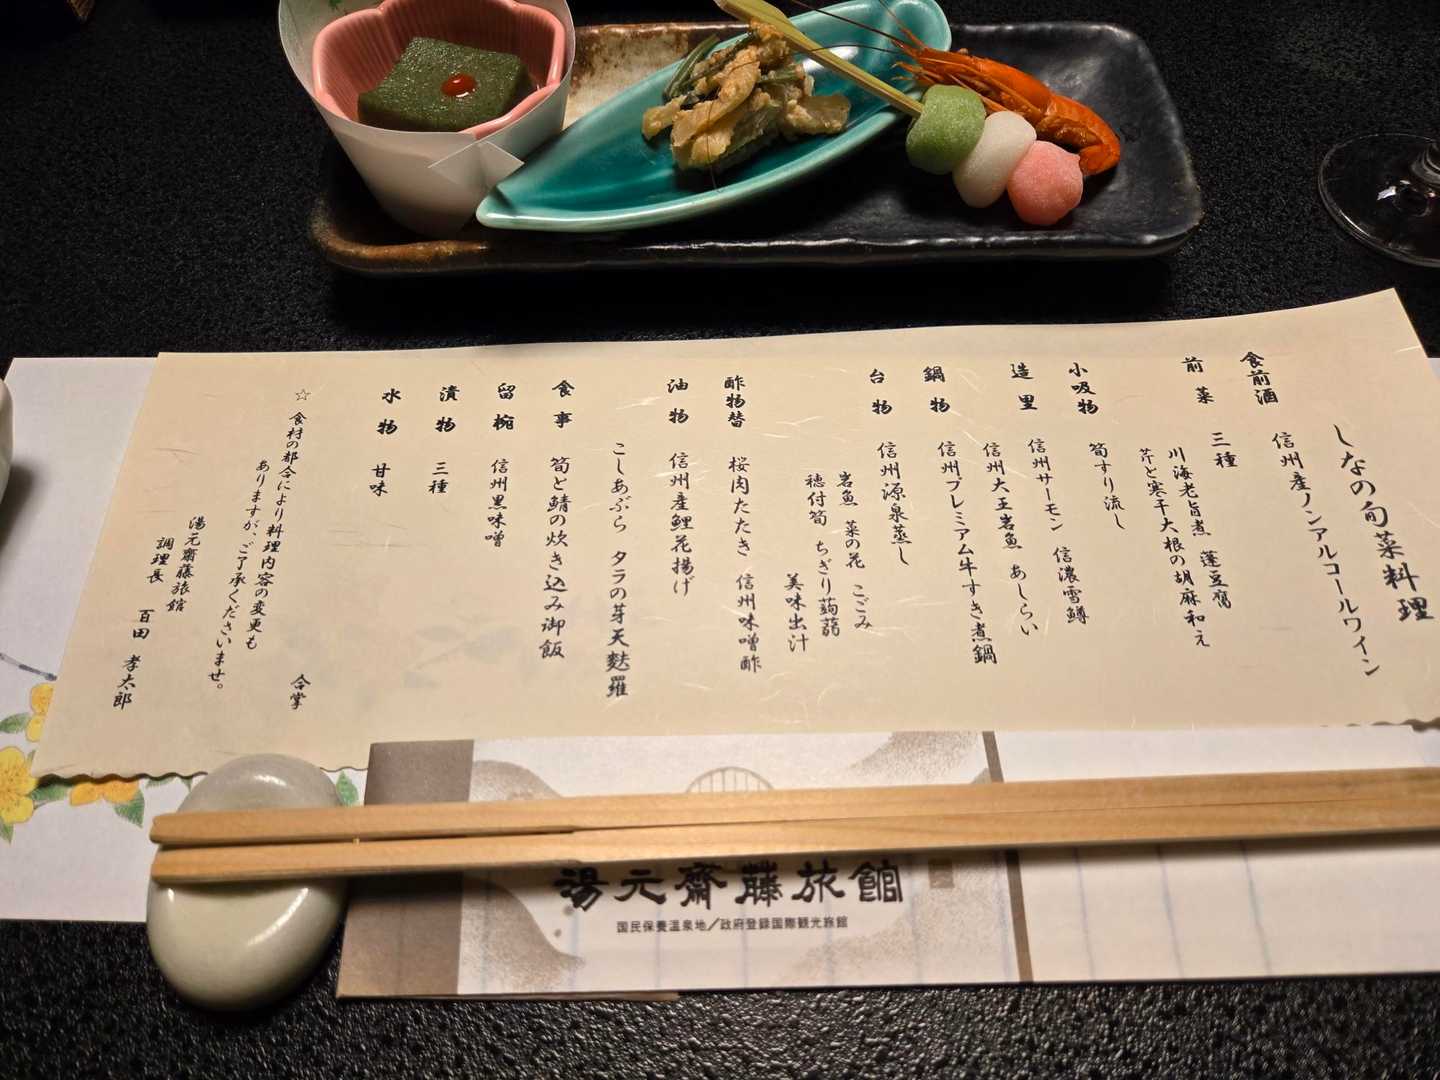 しなの旬菜料理
食前酒 信州産ノンアルコールワイン
前菜 三種
川海老旨煮 蓬豆腐
芹と寒干大根の胡麻和え
小吸物 筍すり流し
造里 信州サーモン 信濃雪鱒
信州大王岩魚 あしらい
鍋物 信州プレミアム牛すき煮鍋
台物 信州源泉蒸し
岩魚 菜の花 こごみ
穂付筍 ちぎり蒟蒻
美味出汁
酢物替 桜肉たたき 信州味噌酢
油物 信州産鯉花揚げ
こしあぶら タラの芽天麩羅
食事 筍と鯖の炊き込み御飯
留椀 信州黒味噌
漬物 三種
水物 甘味
☆ 食材の都合により料理内容の変更も
ありますが、ご了承くださいませ。
合掌
湯元齋藤旅館
調理長 百田 孝太郎
湯元齋藤旅館
国民保養温泉地／政府登録国際観光旅館